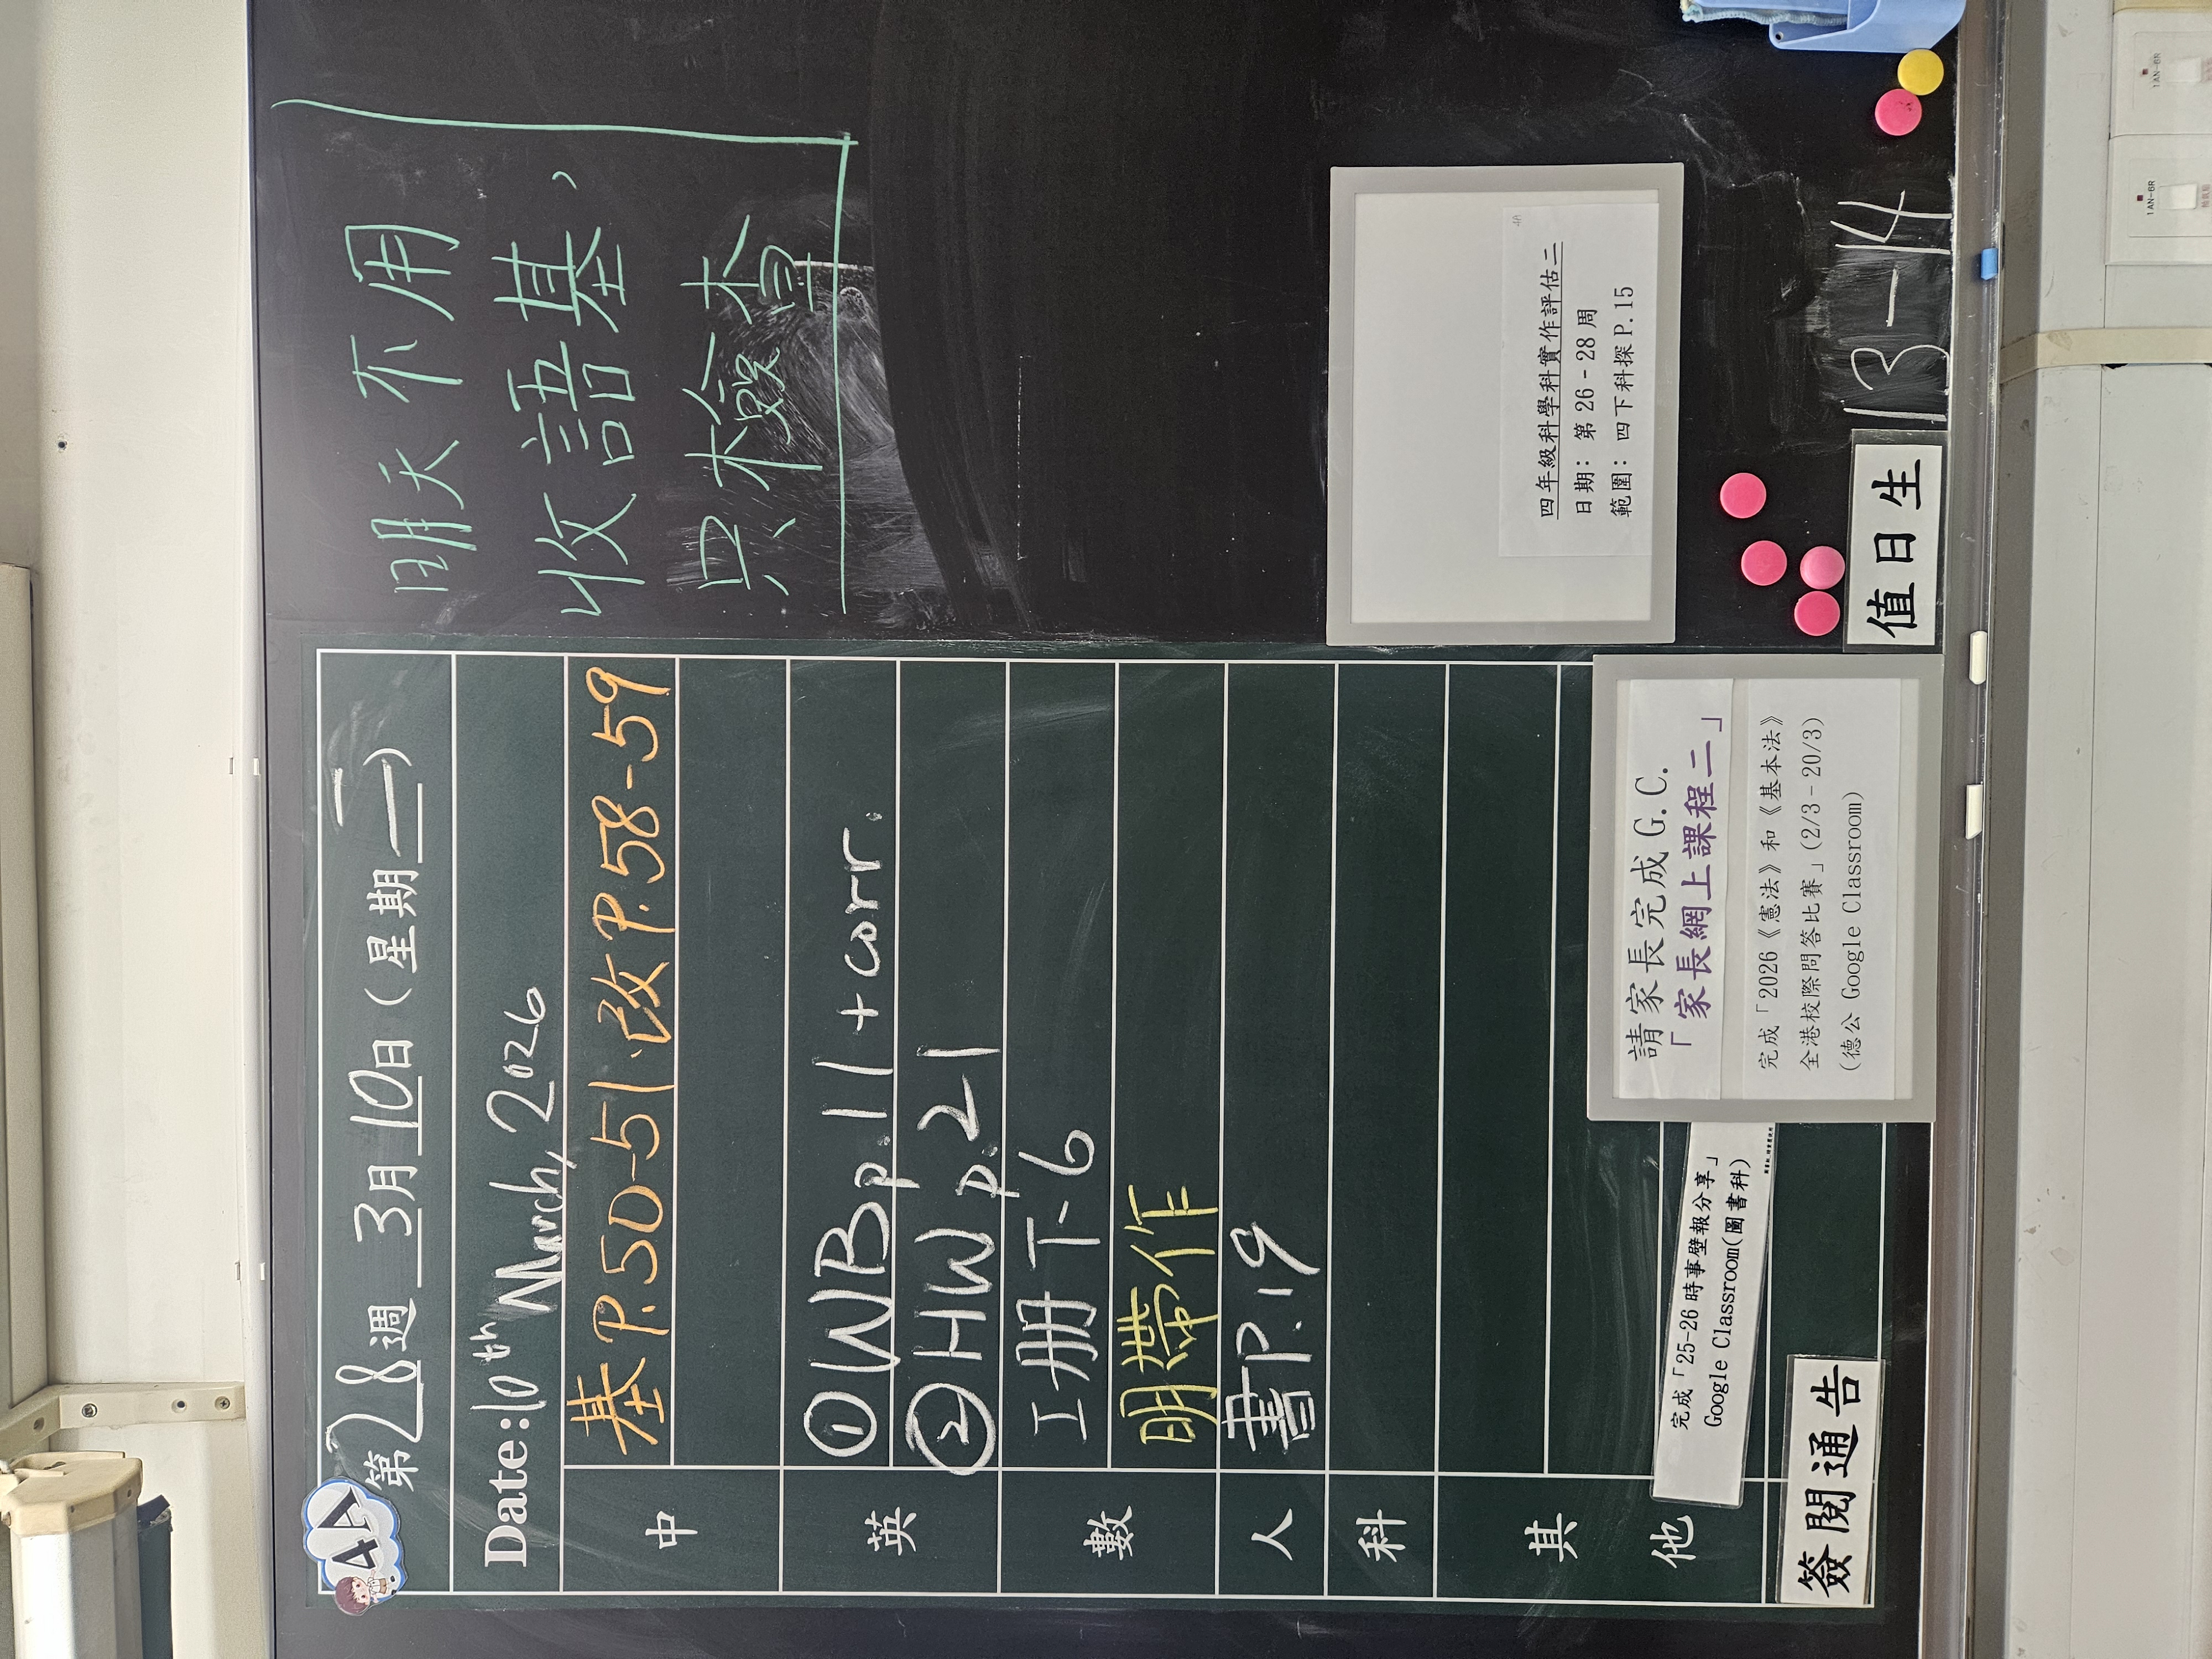 4A
第28週 3月10日(星期二)
Date:10th March, 2026
中
基P.50-51、改P.58-59
英
①WBp.11+corr.
②HW p.21
數
工册下-6
明帶作
人
書P.19
科
其他
完成「25-26時事壁報分享」
Google Classroom(圖書科)
請家長完成G.C.
「家長網上課程二」
完成「2026《憲法》和《基本法》
全港校際問答比賽」(2/3-20/3)
(德公 Google Classroom)
簽閱通告
明天不用
收語基,
只檢查
四年級科學科實作評估二
日期：第 26-28周
範圍：四下科探P.15
4A
值日生
13-14
1AN-BR
1AN-BR